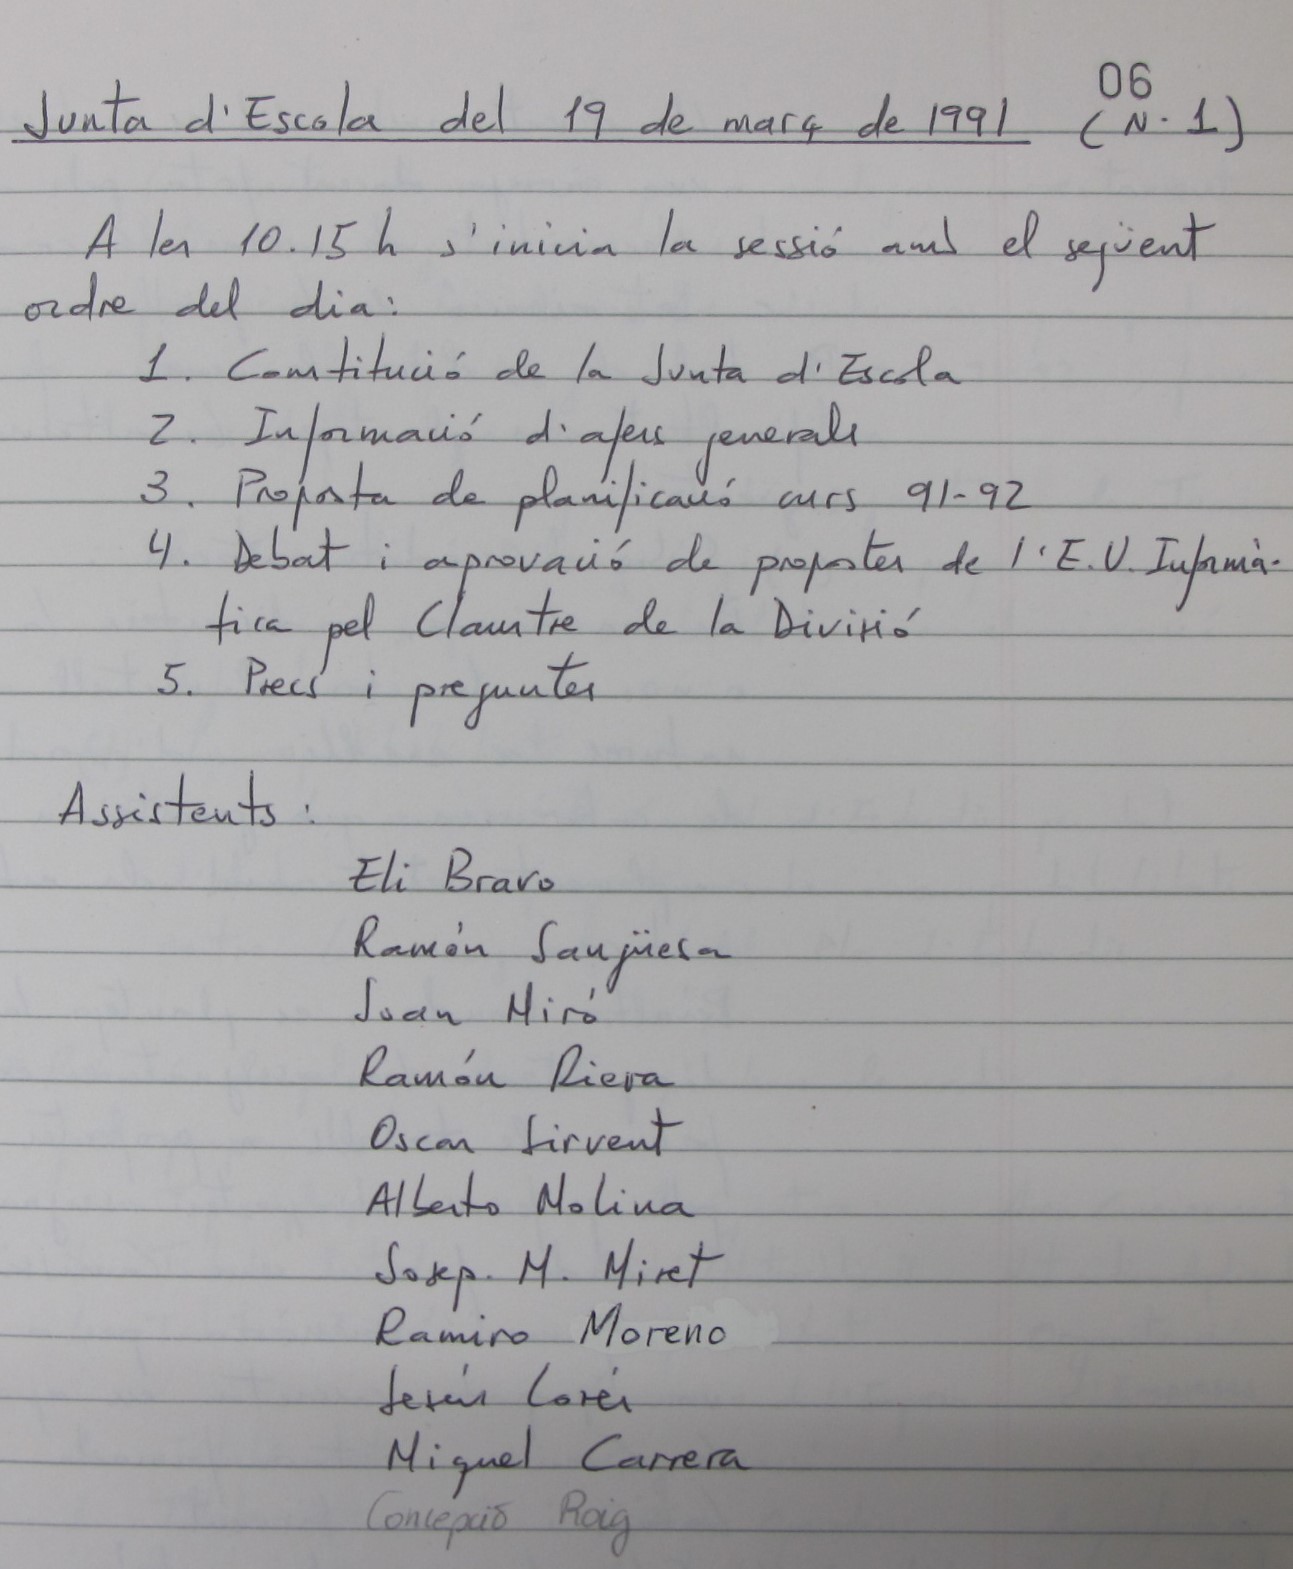 06
Junta d'Escola del 19 de març de 1991 (N. 1)
A les 10.15 h s'inicia la sessió amb el següent
ordre del dia:
1. Constitució de la Junta d'Escola
2. Informació d'afers generals
3. Proposta de planificació curs 91-92
4. Debat i aprovació de propostes de l'E.U. Informà-
tica pel Claustre de la Divisió
5. Precs i preguntes
Assistents:
Eli Bravo
Ramón Sangüesa
Joan Miró
Ramón Riera
Oscar Sirvent
Alberto Molina
Josep. M. Miret
Ramiro Moreno
Jesús Lorés
Miquel Carrera
Concepció Roig